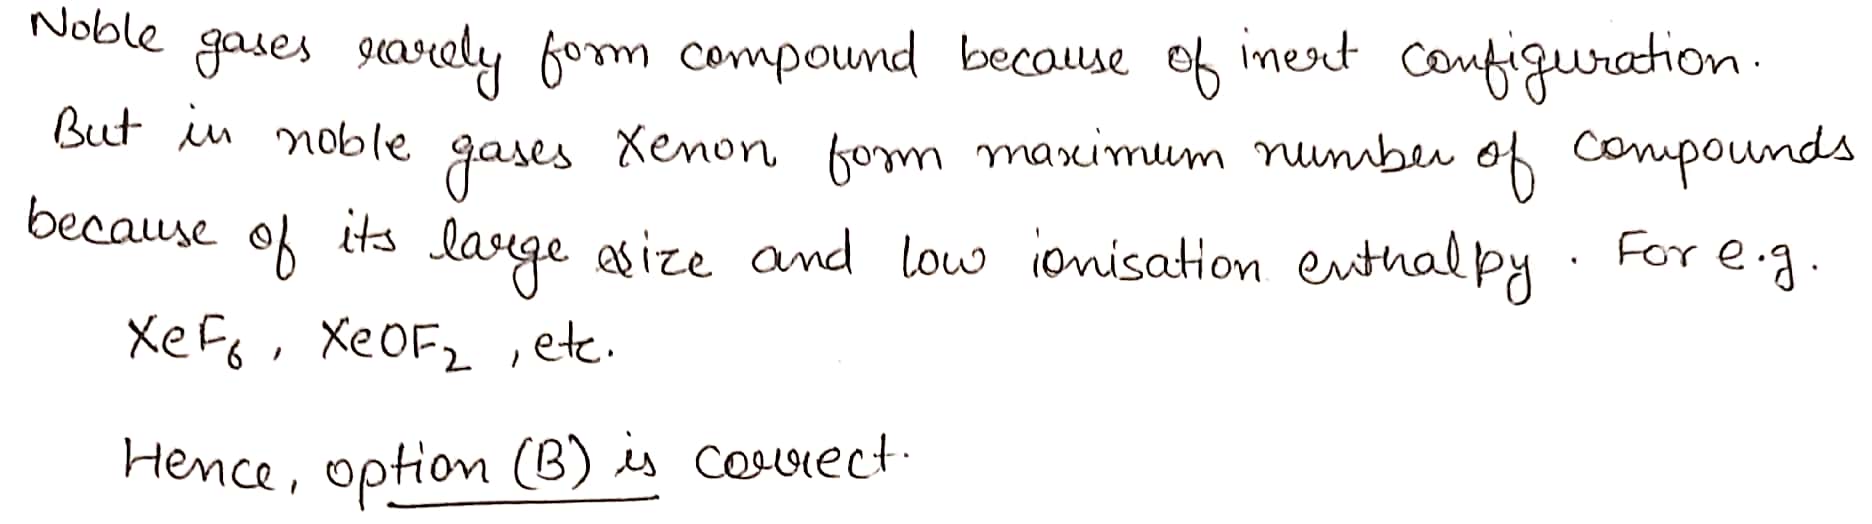 Noble gases rarely form compound because of inert configuration.
But in noble gases Xenon form maximum number of compounds
because of its large size and low ionisation enthalpy. For e.g.
XeF₆, XeOF₂, etc.
Hence, option (B) is correct.